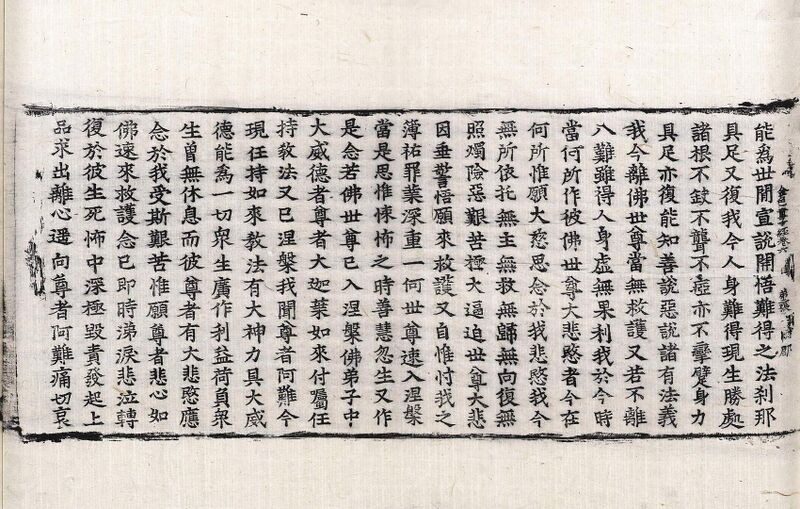 能爲世間宣說開悟難得之法刹那
具足又復我今人身難得現生勝處
諸根不缺不聾不瘂亦不攣躄身力
具足亦復能知善說惡說諸有法義
我今離佛世尊當無救護又若不離
八難雖得人身虛無果利我於今時
當何所作彼佛世尊大悲愍者今在
何所惟願大慈思念於我悲愍我今
無所依托無主無救無歸無向復無
照燭險惡艱苦極大逼迫世尊大悲
因垂警悟願來救護又自惟忖我之
薄祐罪業深重一何世尊速入涅槃
當是思惟悚怖之時善慧忽生又作
是念若佛世尊已入涅槃佛弟子中
大威德者尊者大迦葉如來付囑任
持敎法又已涅槃我聞尊者阿難今
現任持如來敎法有大神力具大威
德能爲一切衆生廣作利益荷負衆
生曾無休息而彼尊者有大悲愍應
念於我受斯艱苦惟願尊者悲心如
佛速來救護念已即時涕淚悲泣轉
復於彼生死怖中深極毀責發起上
品求出離心遥向尊者阿難痛切哀